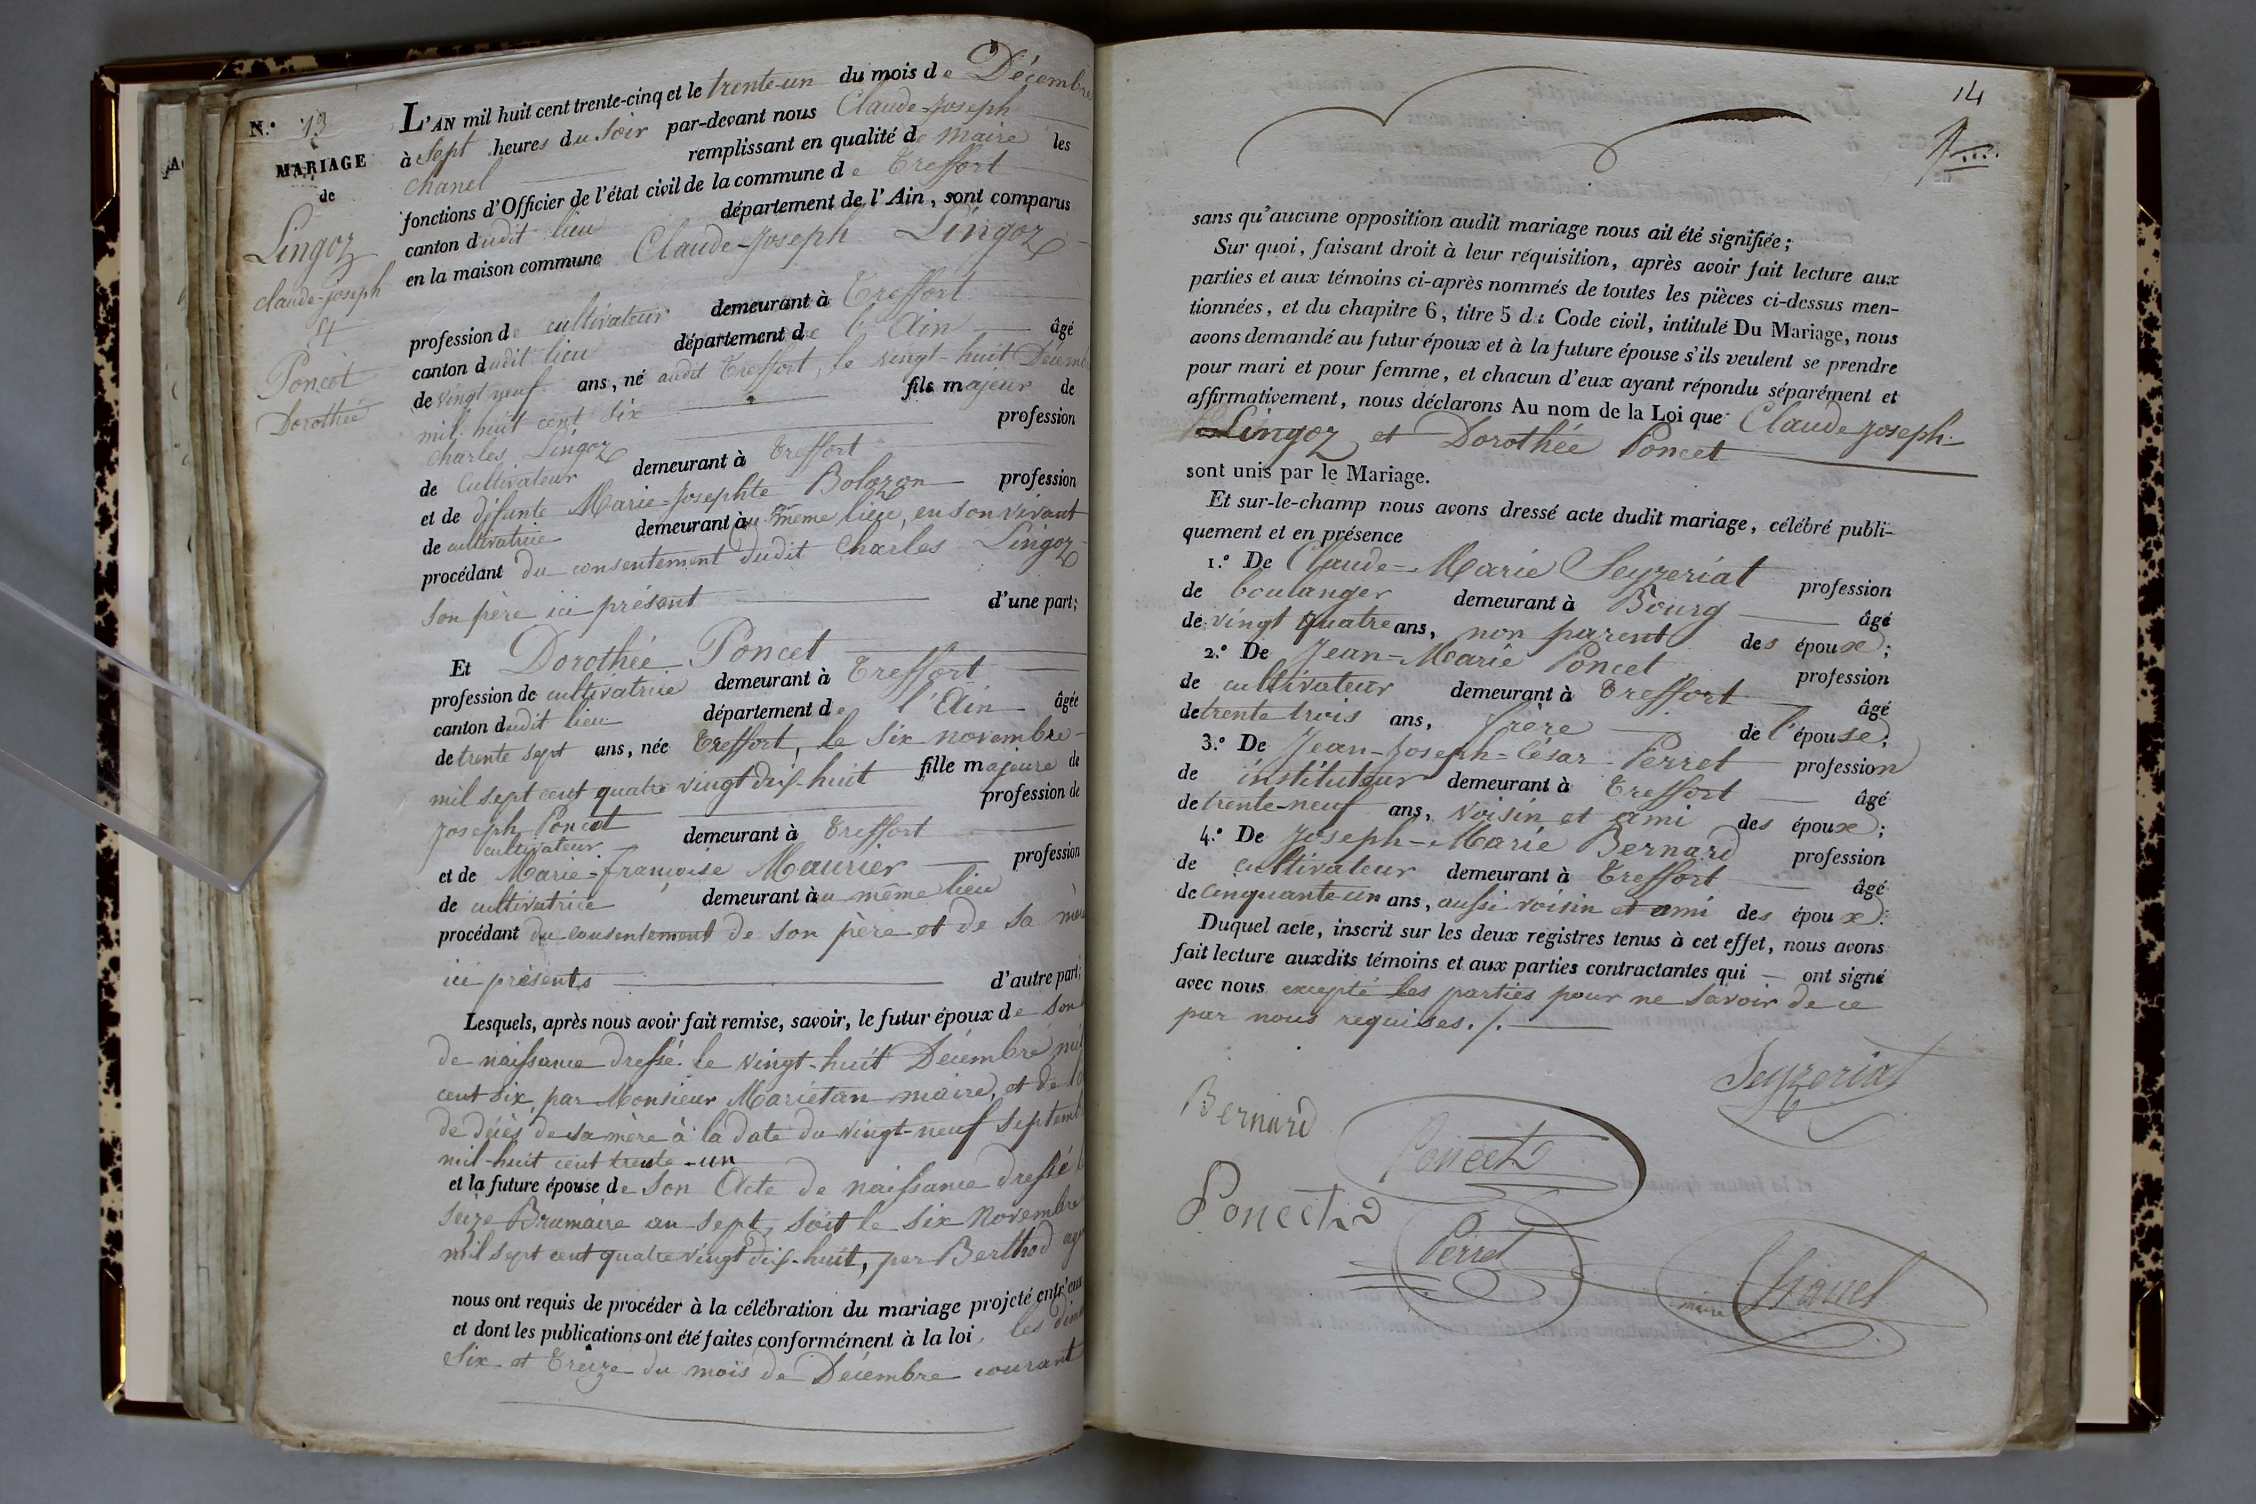 N.° 13
MARIAGE
de
Lingoz
claude-joseph
et
Poncet
Dorothée
L'AN mil huit cent trente-cinq et le trente-un du mois de Décembre
à sept heures du soir par-devant nous Claude-Joseph
chanel remplissant en qualité de maire les
fonctions d'Officier de l'état civil de la commune de Treffort
canton dudit lieu département de l'Ain, sont comparus
en la maison commune Claude-Joseph Lingoz
profession de cultivateur demeurant à Treffort
canton dudit lieu département de l'Ain âgé
de vingt neuf ans, né audit Treffort, le vingt-huit Décem
mil huit cent six fils majeur de
charles Lingoz profession
de Cultivateur demeurant à Treffort
et de défunte Marie-Josephte Bolozon profession
de cultivatrice demeurant au même lieu, en son vivant
procédant du consentement dudit Charles Lingoz
son père ici présent d'une part;
Et Dorothée Poncet
profession de cultivatrice demeurant à Treffort
canton dudit lieu département de l'Ain âgée
de trente sept ans, née Treffort, le six novembre
mil sept cent quatre vingt dix-huit fille majeure de
Joseph Poncet profession de
cultivateur demeurant à Treffort
et de Marie-françoise Maurier profession
de cultivatrice demeurant au même lieu
procédant du consentement de son père et de sa mère
ici présents d'autre part;
Lesquels, après nous avoir fait remise, savoir, le futur époux de son
de naissance dressé le vingt-huit Décembre mil
cent six, par Monsieur Marietan maire, et de
de décès de sa mère à la date du vingt-neuf septemb
mil-huit cent trente-un
et la future épouse de son Acte de naissance dressé
seize Brumaire an sept, soit le six Novembre
mil sept cent quatre vingt dix-huit, par Berthod
nous ont requis de procéder à la célébration du mariage projeté entr'eux
et dont les publications ont été faites conformément à la loi, les dim
Six et treize du mois de Décembre courant
14
sans qu'aucune opposition audit mariage nous ait été signifiée;
Sur quoi, faisant droit à leur réquisition, après avoir fait lecture aux
parties et aux témoins ci-après nommés de toutes les pièces ci-dessus men-
tionnées, et du chapitre 6, titre 5 du Code civil, intitulé Du Mariage, nous
avons demandé au futur époux et à la future épouse s'ils veulent se prendre
pour mari et pour femme, et chacun d'eux ayant répondu séparément et
affirmativement, nous déclarons Au nom de la Loi que Claude Joseph
Lingoz et Dorothée Poncet
sont unis par le Mariage.
Et sur-le-champ nous avons dressé acte dudit mariage, célébré publi-
quement et en présence
1.° De Claude-Marie Seyzeriat profession
de boulanger demeurant à Bourg âgé
de vingt quatre ans, non parent des époux;
2.° De Jean-Marie Poncet profession
de cultivateur demeurant à Treffort âgé
de trente trois ans, frère de l'épouse;
3.° De Jean-Joseph-César Perret profession
de instituteur demeurant à Treffort âgé
de trente-neuf ans, voisin et ami des époux;
4.° De Joseph-Marie Bernard profession
de cultivateur demeurant à Treffort âgé
de Cinquante-un ans, aussi voisin et ami des époux.
Duquel acte, inscrit sur les deux registres tenus à cet effet, nous avons
fait lecture auxdits témoins et aux parties contractantes qui ont signé
avec nous excepté les parties pour ne savoir de ce
par nous requises./.
Seyzeriat
Bernard
Poncet
Poncet
Perret
maire Chanel